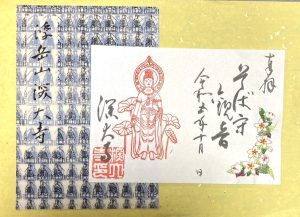 奉拝
そば守
観音
令和五年十月　日
深大寺
浮岳山深大寺